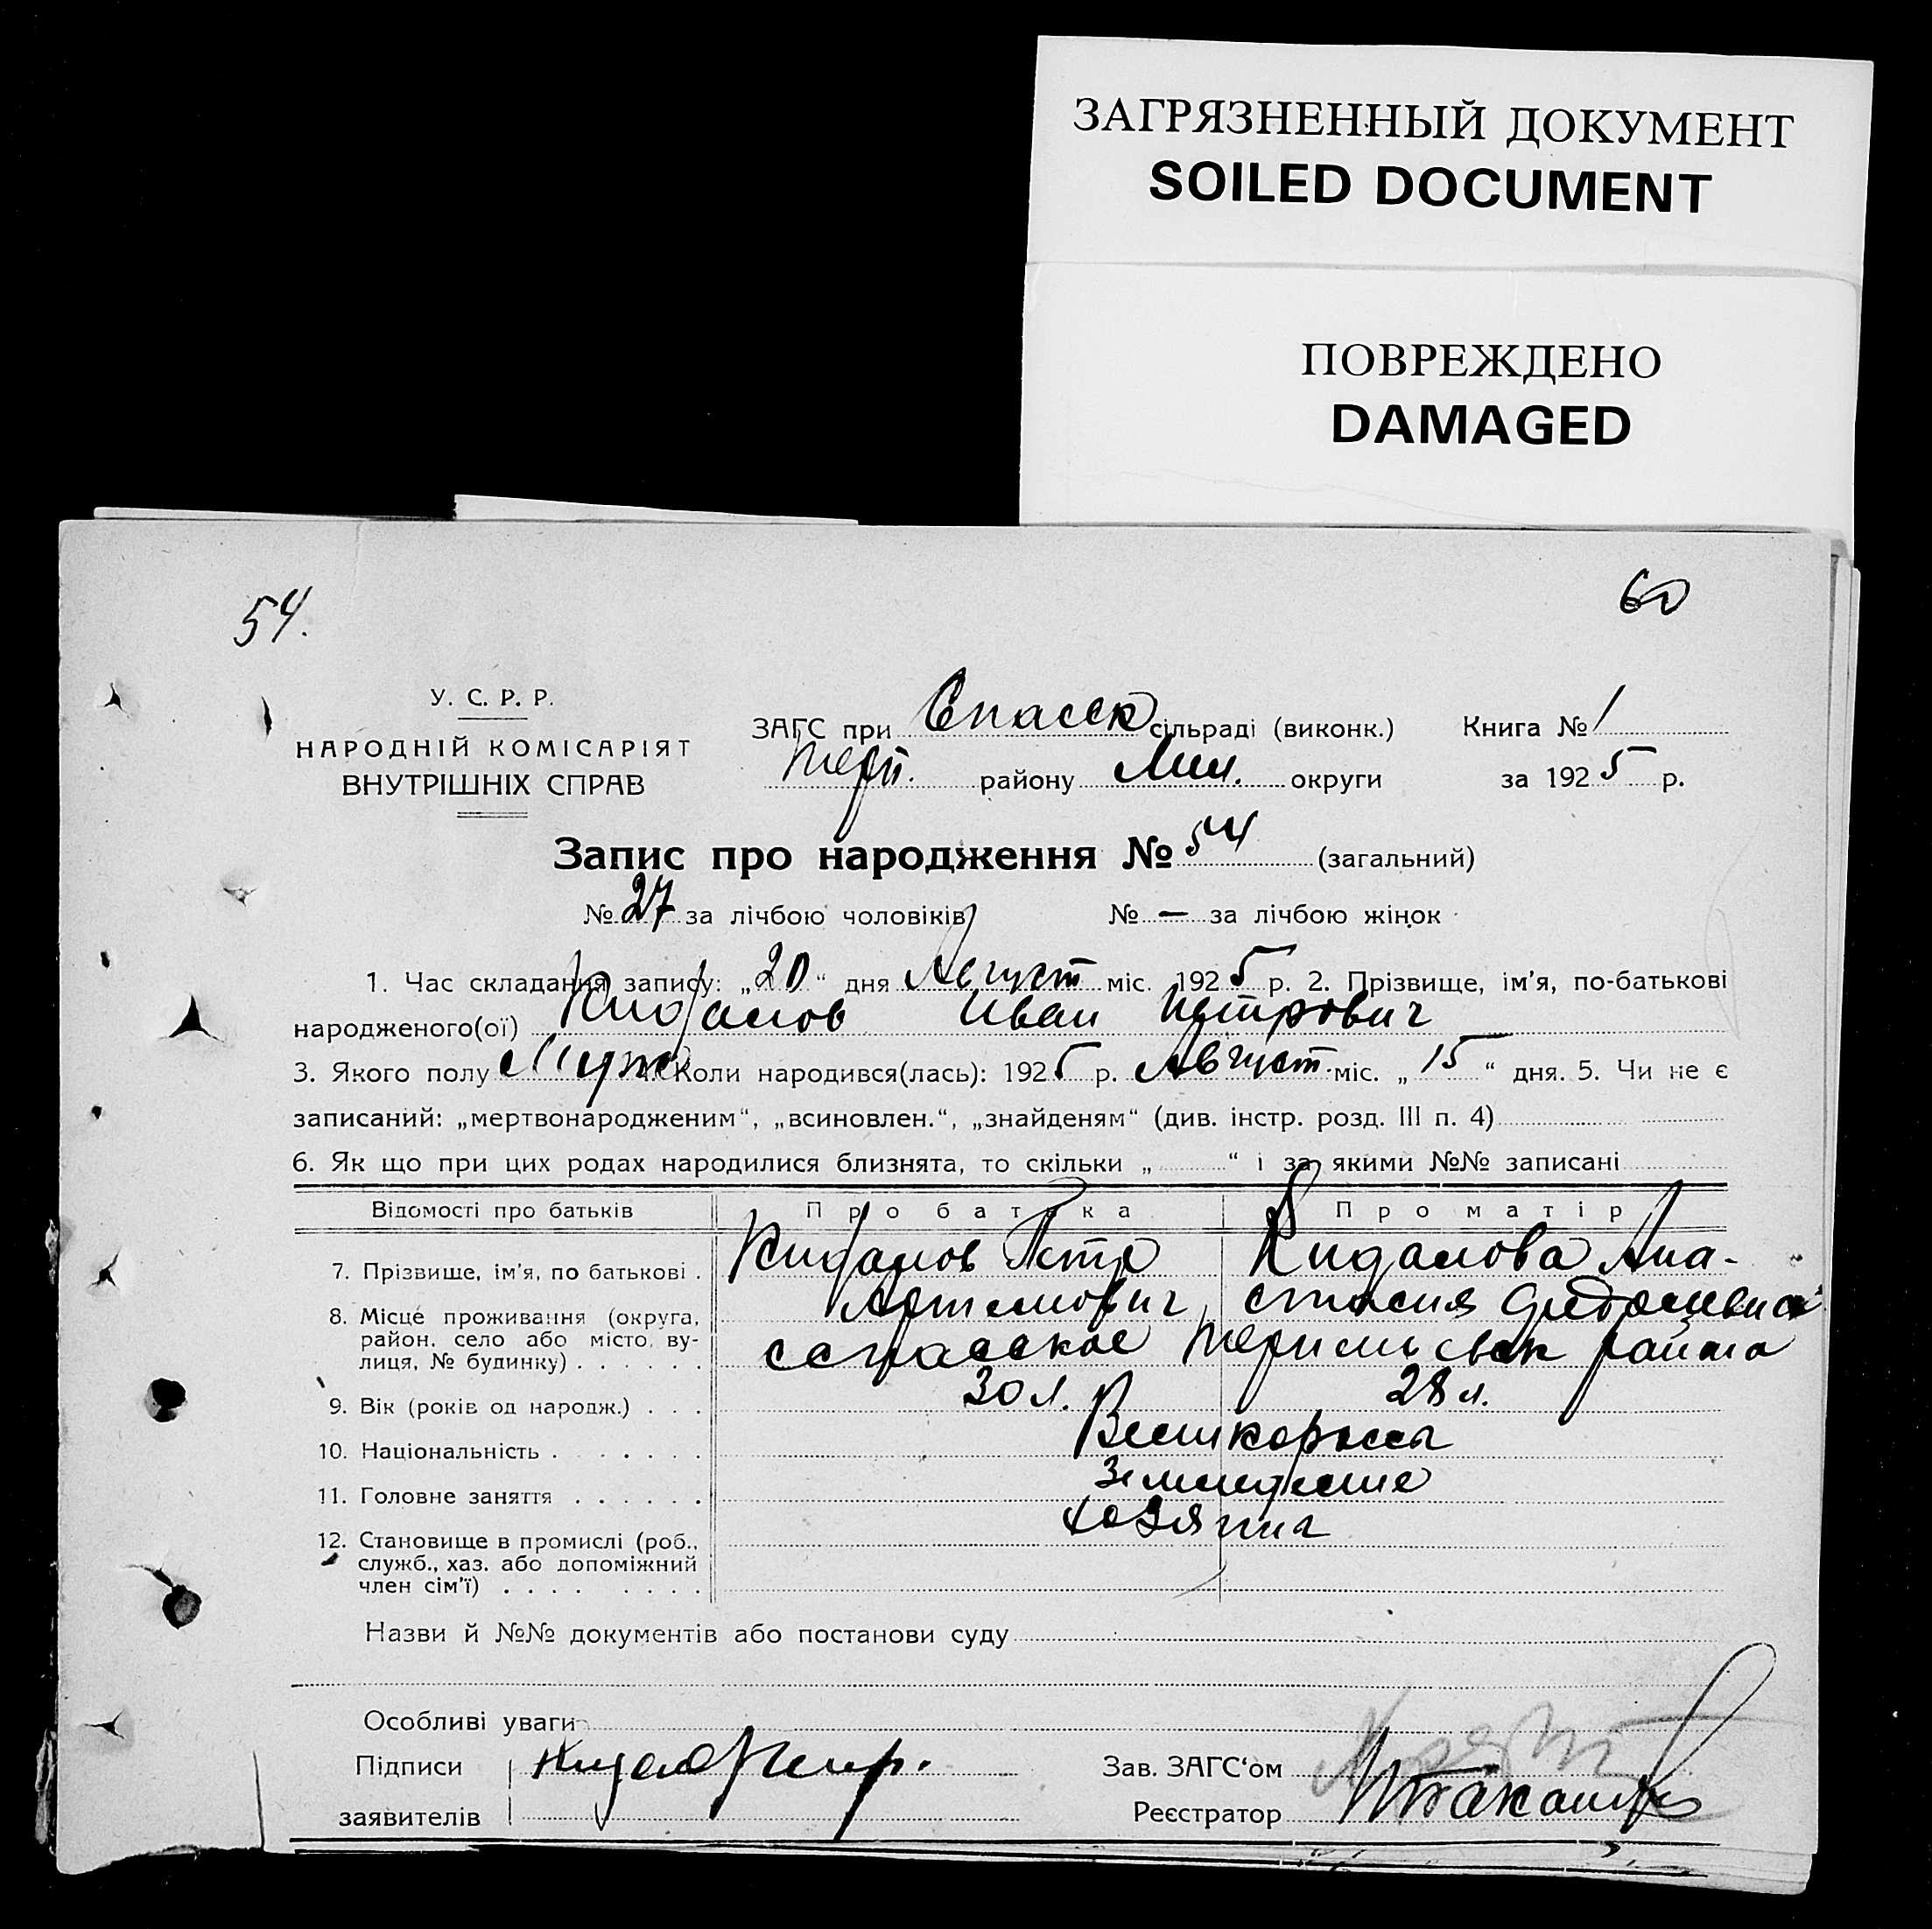 ЗАГРЯЗНЕННЫЙ ДОКУМЕНТ
SOILED DOCUMENT
ПОВРЕЖДЕНО
DAMAGED
54.
60
У. С. Р. Р.
НАРОДНІЙ КОМІСАРІЯТ
ВНУТРІШНІХ СПРАВ
ЗАГС при Спасск сільраді (виконк.) Книга № 1
Терп. району Мел. округи за 1925 р.
Запис про народження № 54 (загальний)
№ 27 за лічбою чоловіків № — за лічбою жінок
1. Час складання запису: „20“ дня Август міс. 1925 р. 2. Прізвище, ім'я, по-батькові
народженого(ої) Кидалов Иван Петрович
3. Якого полу Муж Коли народився(лась): 1925 р. Август міс. „15“ дня. 5. Чи не є
записаний: „мертвонародженим“, „всиновлен.“, „знайденям“ (див. інстр. розд. III п. 4)
6. Як що при цих родах народилися близнята, то скільки „ “ і за якими №№ записані
Відомості про батьків Про батька Про матір
7. Прізвище, ім'я, по батькові . Кидалов Петр Кидалова Ана-
Артемович стасия
8. Місце проживання (округа,
район, село або місто, ву-
лиця, № будинку) . . . . . . района
9. Вік (років од народж.) . . . 30 л. 28 л.
10. Національність . . . . . . . Великороссы
11. Головне заняття . . . . . . Земледелие
12. Становище в промислі (роб.,
служб., хаз. або допоміжний
член сім'ї) . . . . . . . .
Назви й №№ документів або постанови суду
Особливі уваги
Підписи
Зав. ЗАГС‘ом
заявителів
Реєстратор